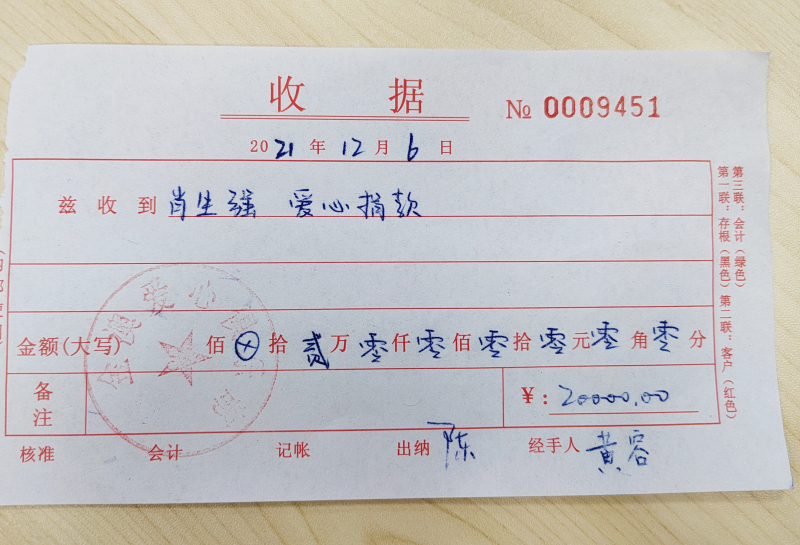 收 据
№ 0009451
2021 年 12 月 6 日
兹 收 到 肖生强 爱心捐款
金额(大写) 佰 ⊗ 拾 贰 万 零 仟 零 佰 零 拾 零 元 零 角 零 分
备注
¥: 20000.00
核准 会计 记帐 出纳 陈 经手人 黄容
第一联：存根（黑色） 第二联：客户（红色）
第三联：会计（绿色）
爱心